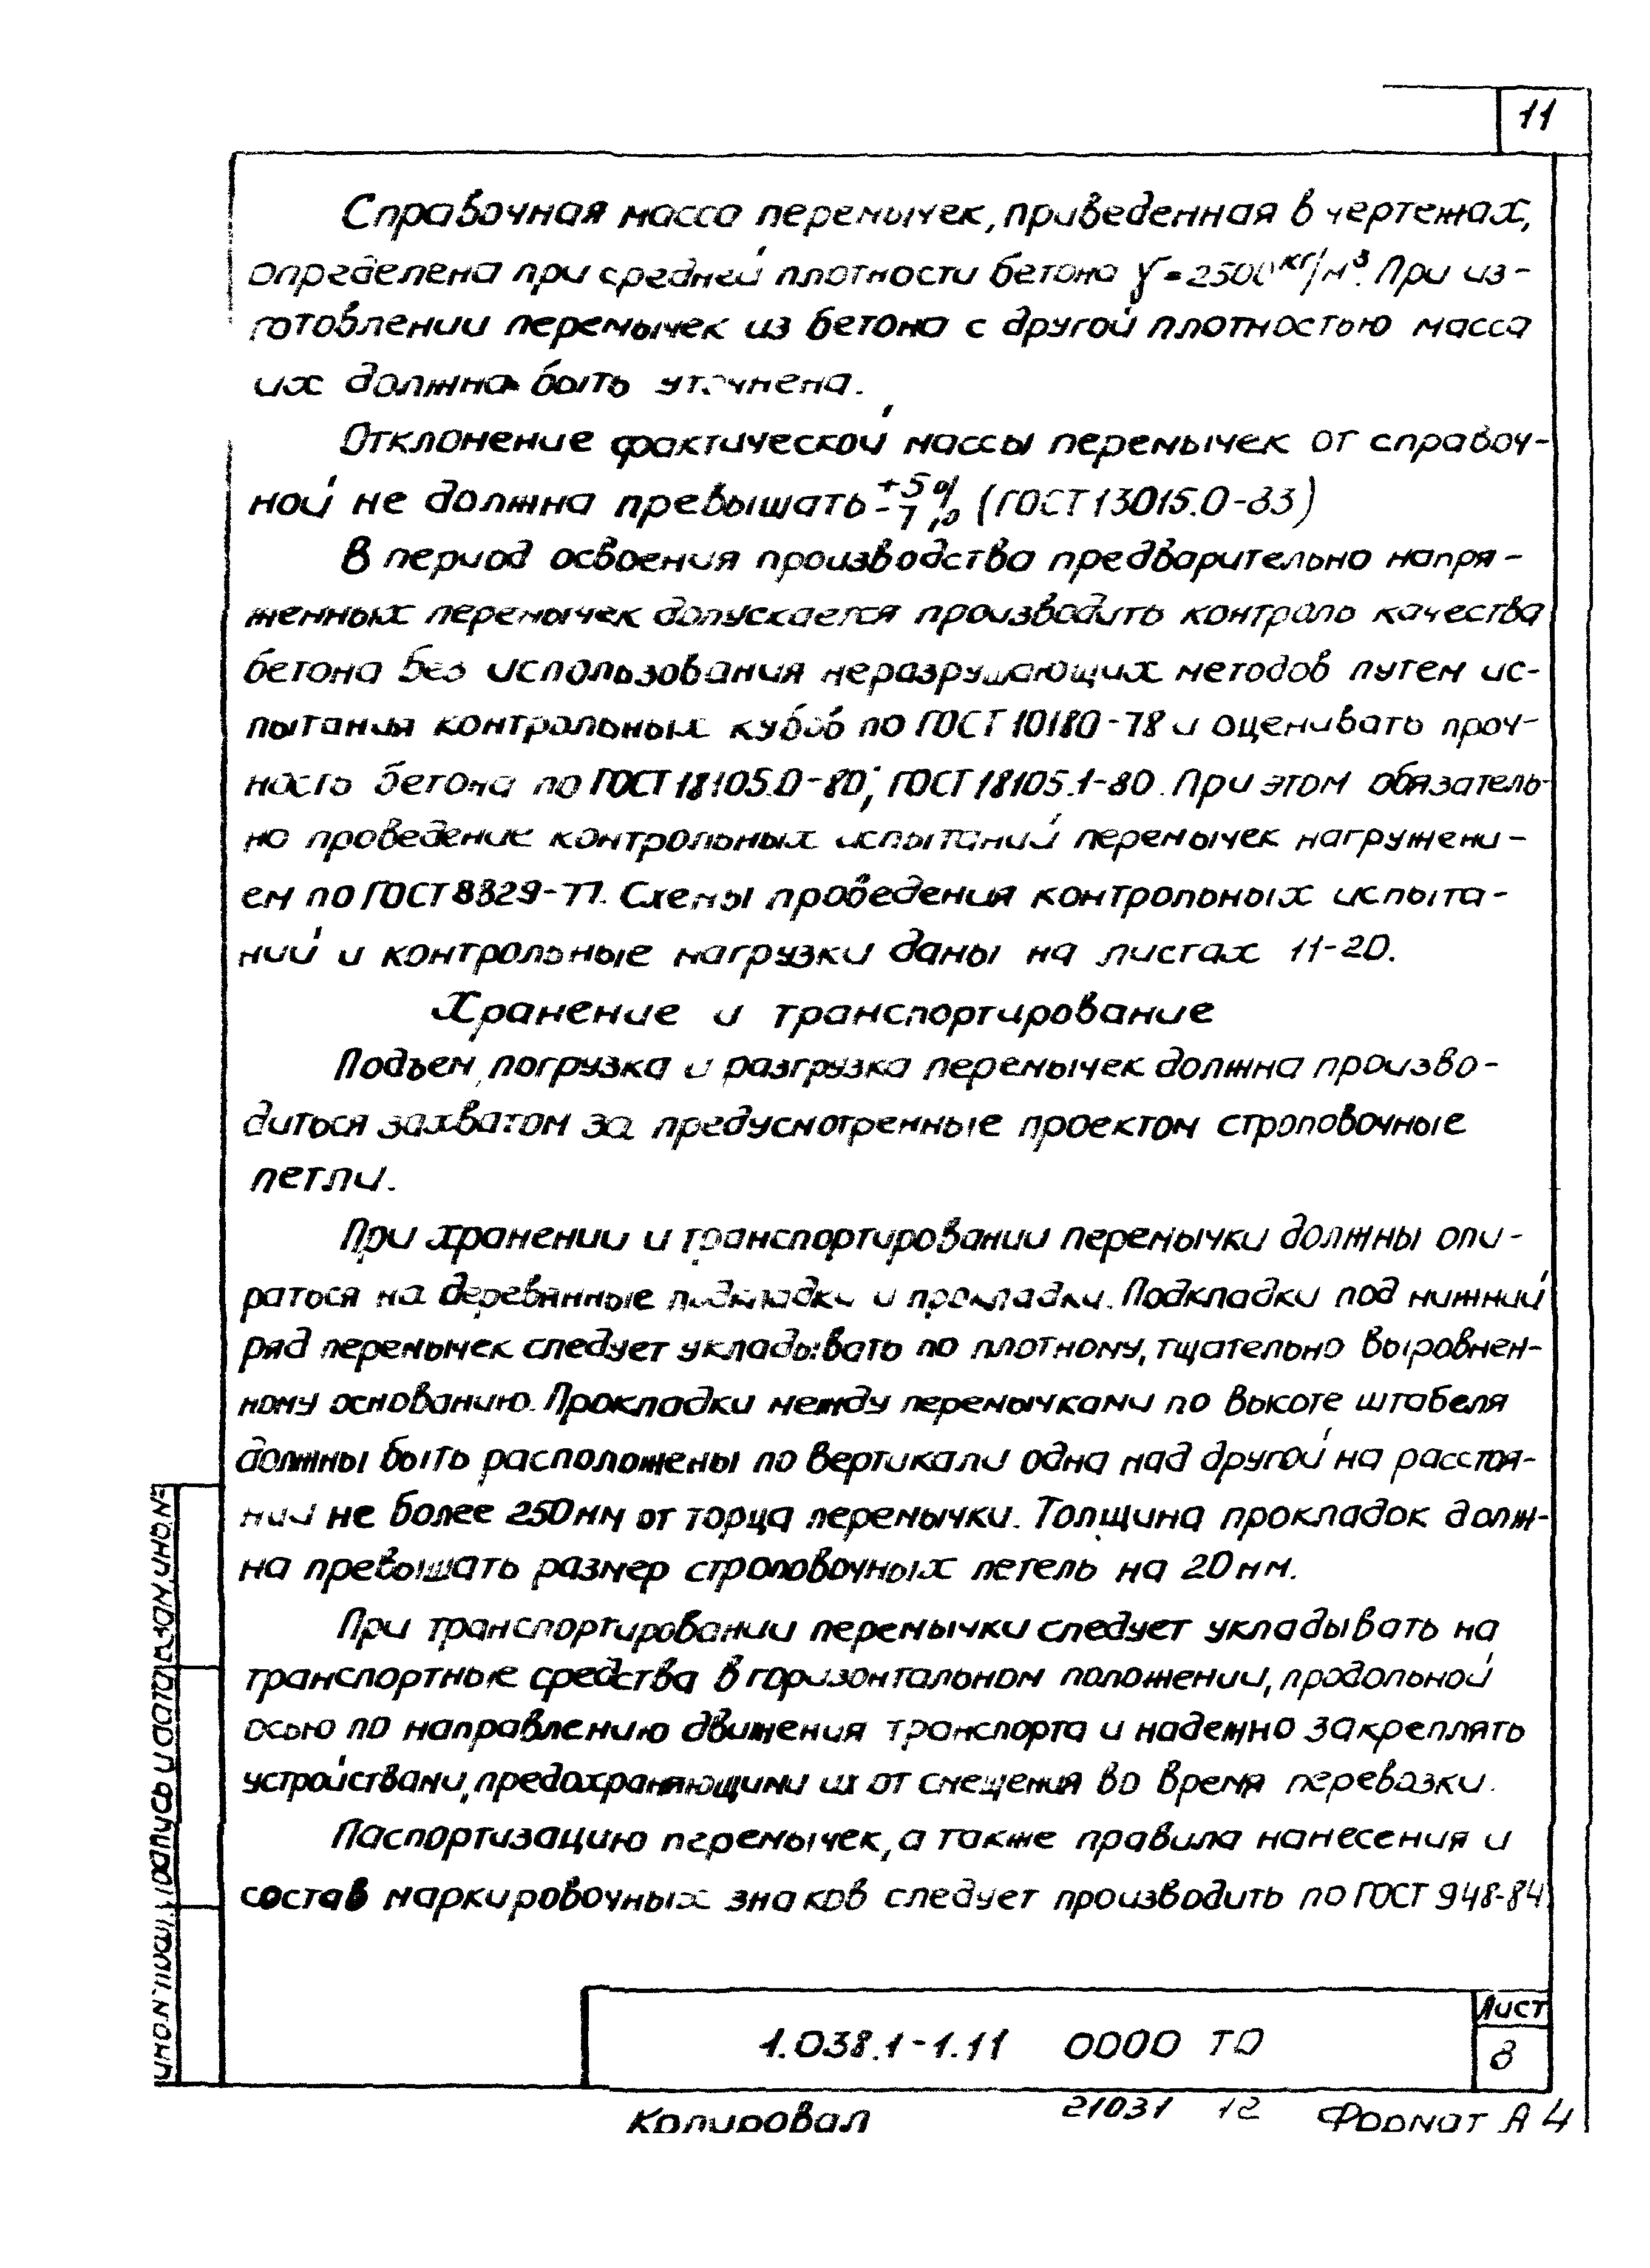 11
Справочная масса перемычек, приведенная в чертежах,
определена при средней плотности бетона γ=2500 кг/м³. При из-
готовлении перемычек из бетона с другой плотностью масса
их должна быть уточнена.
Отклонение фактической массы перемычек от справоч-
ной не должна превышать +5 -7 % (ГОСТ 13015.0-83)
В период освоения производства предварительно напря-
женных перемычек допускается производить контроль качества
бетона без использования неразрушающих методов путем ис-
пытания контрольных кубов по ГОСТ 10180-78 и оценивать проч-
ность бетона по ГОСТ 18105.0-80; ГОСТ 18105.1-80. При этом обязатель-
но проведение контрольных испытаний перемычек нагружени-
ем по ГОСТ 8829-77. Схемы проведения контрольных испыта-
ний и контрольные нагрузки даны на листах 11-20.
Хранение и транспортирование
Подъем, погрузка и разгрузка перемычек должна произво-
диться захватом за предусмотренные проектом строповочные
петли.
При хранении и транспортировании перемычки должны опи-
раться на деревянные подкладки и прокладки. Подкладки под нижний
ряд перемычек следует укладывать по плотному, тщательно выровнен-
ному основанию. Прокладки между перемычками по высоте штабеля
должны быть расположены по вертикали одна над другой на расстоя-
нии не более 250мм от торца перемычки. Толщина прокладок долж-
на превышать размер строповочных петель на 20мм.
При транспортировании перемычки следует укладывать на
транспортные средства в горизонтальном положении, продольной
осью по направлению движения транспорта и надежно закреплять
устройствами, предохраняющими их от смещения во время перевозки.
Паспортизацию перемычек, а также правила нанесения и
состав маркировочных знаков следует производить по ГОСТ 948-84.
Инв.N. подл. Подпись и дата Взам.инв.N
1.038.1-1.11 0000 ТО
Лист
8
Копировал 21031 12 Формат А4